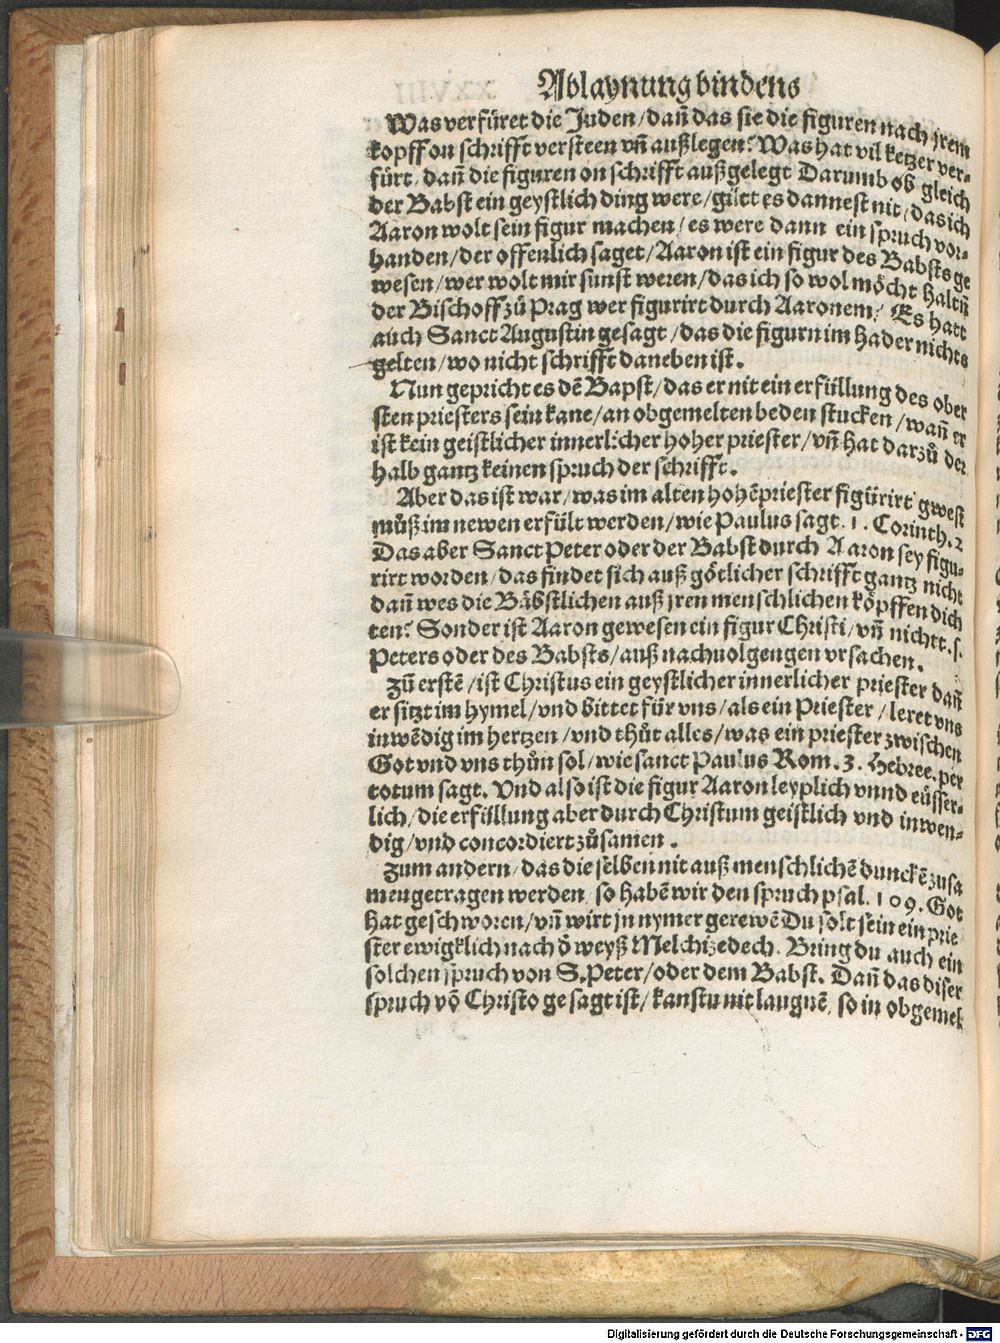 Ablaynung bindens
Was verfüret die Juden / dañ das sie die figuren nach jrem
kopff on schrifft versteen vñ außlegen? Was hat vil ketzer ver-
fürt / dañ die figuren on schrifft außgelegt Darumb ob gleich
der Babst ein geystlich ding were / gült es dannest nit / das ich
Aaron wolt sein figur machen / es were dann ein spruch vor-
handen / der offenlich saget / Aaron ist ein figur des Babsts ge
wesen / wer wolt mir sunst weren / das ich so wol möcht haltñ
der Bischoff zů Prag wer figurirt durch Aaronem? Es hatt
auch Sanct Augustin gesagt / das die figurn im hader nichts
gelten / wo nicht schrifft daneben ist.
Nun gepricht es dē Bapst / das er nit ein erfüllung des ober
sten priesters sein kane / an obgemelten beden stucken / wañ er
ist kein geistlicher innerlicher hoher priester / vñ hat darzů der
halb gantz keinen spruch der schrifft.
Aber das ist war / was im alten hohēpriester figürirt gwest
můß im newen erfült werden / wie Paulus sagt. 1. Corinth. 2
Das aber Sanct Peter oder der Babst durch Aaron sey figu-
rirt worden / das findet sich auß götlicher schrifft gantz nicht
dañ wes die Bäbstlichen auß jren menschlichen köpffen dich
ten? Sonder ist Aaron gewesen ein figur Christi / vñ nichtt. s.
Peters oder des Babsts / auß nachuolgengen vrsachen.
Zů erstē / ist Christus ein geystlicher innerlicher priester dañ
er sitzt im hymel / vnd bittet für vns / als ein Priester / leret vns
inwēdig im hertzen / vnd thůt alles / was ein priester zwischen
Got vnd vns thůn sol / wie sanct Paulus Rom. 3. Hebree. per
totum sagt. Vnd also ist die figur Aaron leyplich vnnd eüsser-
lich / die erfüllung aber durch Christum geistlich vnd inwen-
dig / vnd concordiert zůsamen.
Zum andern / das die selben nit auß menschlichē dunckē zusa
mengetragen werden / so habē wir den spruch psal. 109. Got
hat geschworen / vñ wirt jn nymer gerewē Du solt sein ein prie
ster ewigklich nach d̄ weyß Melchizedech. Bring du auch ein
solchen spruch von S. Peter / oder dem Babst. Dañ das diser
spruch vō Christo gesagt ist / kanstu nit laugnē / so in obgemel
Digitalisierung gefördert durch die Deutsche Forschungsgemeinschaft - DFG